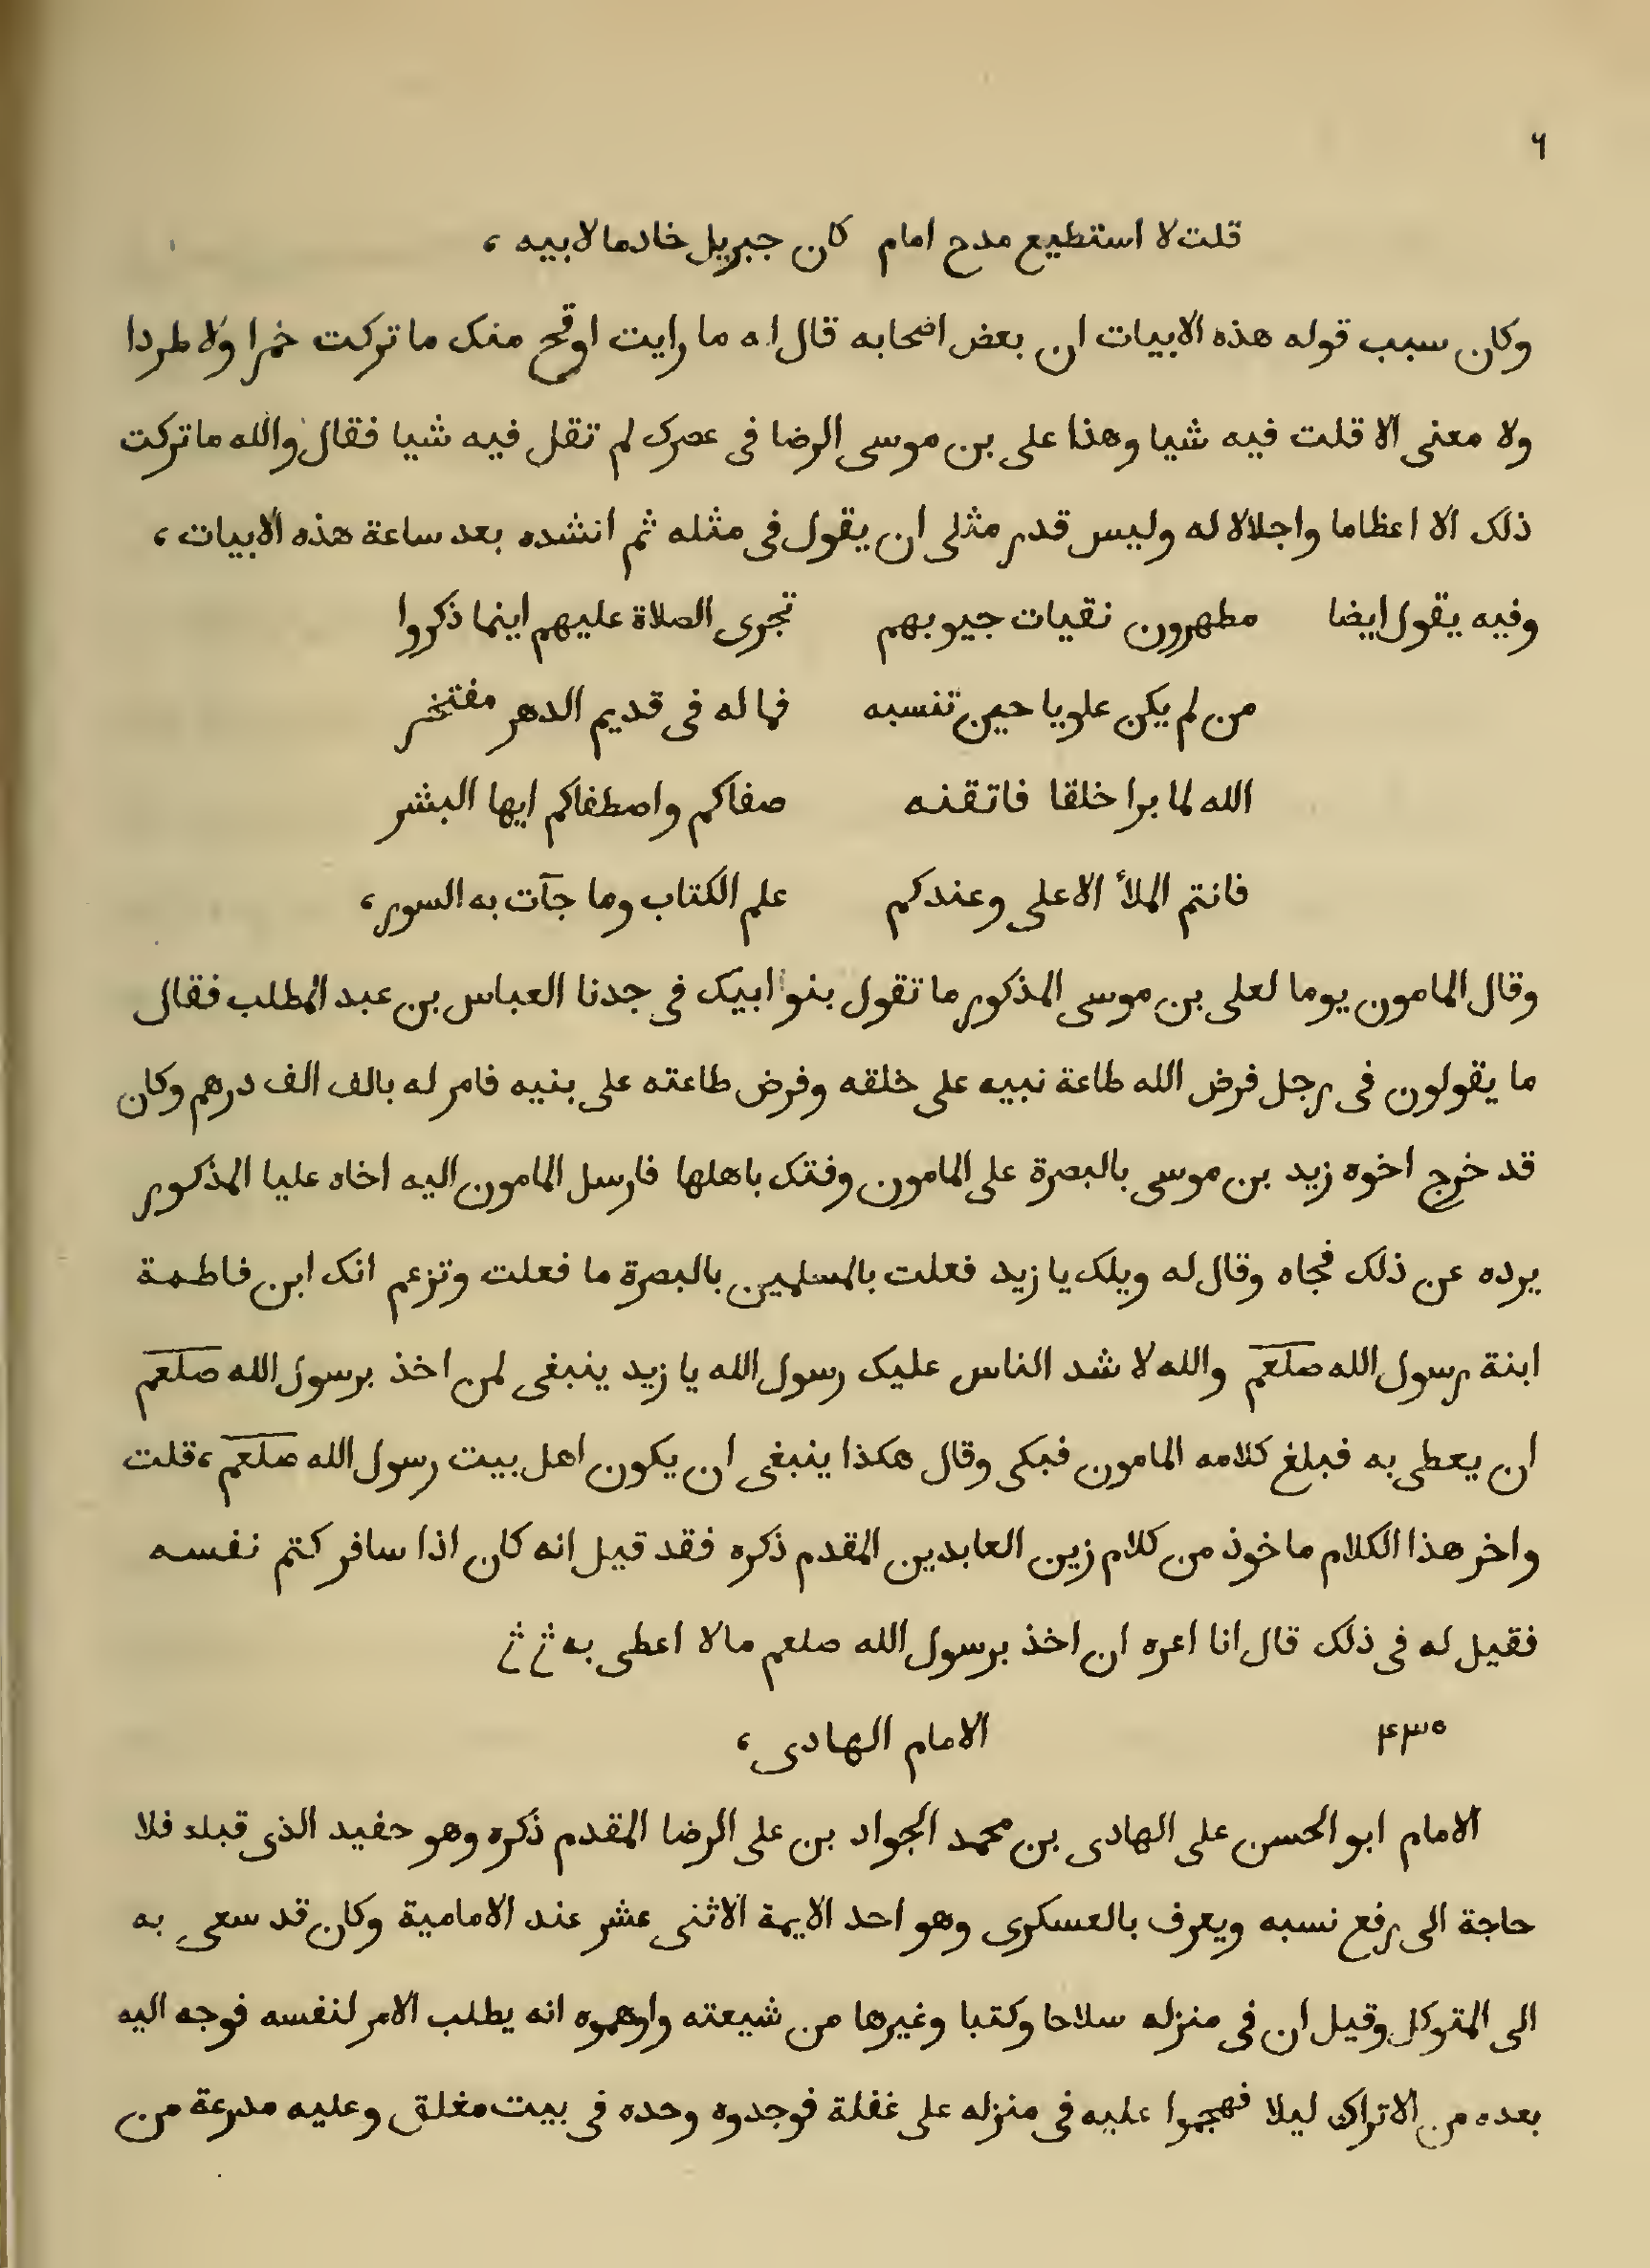 ٦
قلت لا استطيع مدح امام كان جبريل خادما لابيه ،
وكان سبب قوله هذه الابيات ان بعض اصحابه قال له ما رايت اوقح منك ما تركت خمرا ولا طردا
ولا معنى الا قلت فيه شيا وهذا على بن موسى الرضا فى عصرك لم تقل فيه شيا فقال والله ما تركت
ذلك الا اعظاما واجلالا له وليس قدر مثلى ان يقول فى مثله ثم انشده بعد ساعة هذه الابيات ،
وفيه يقول ايضا مطهرون نقيات جيوبهم تجرى الصلاة عليهم اينما ذكروا
من لم يكن علويا حين تنسبه فما له فى قديم الدهر مفتخر
الله لما برا خلقا فاتقنه صفاكم واصطفاكم ايها البشر
فانتم الملأ الاعلى وعندكم علم الكتاب وما جآت به السور ،
وقال المامون يوما لعلى بن موسى المذكور ما تقول بنو ابيك فى جدنا العباس بن عبد المطلب فقال
ما يقولون فى رجل فرض الله طاعة نبيه على خلقه وفرض طاعته على بنيه فامر له بالف الف درهم وكان
قد خرج اخوه زيد بن موسى بالبصرة على المامون وفتك باهلها فارسل المامون اليه اخاه عليا المذكور
يرده عن ذلك فجاه وقال له ويلك يا زيد فعلت بالمسلمين بالبصرة ما فعلت وتزعم انك ابن فاطمة
ابنة رسول الله صلعم والله لا شد الناس عليك رسول الله يا زيد ينبغى لمن اخذ برسول الله صلعم
ان يعطى به فبلغ كلامه المامون فبكى وقال هكذا ينبغى ان يكون اهل بيت رسول الله صلعم ، قلت
واخر هذا الكلام ماخوذ من كلام زين العابدين المقدم ذكره فقد قيل انه كان اذا سافر كتم نفسه
فقيل له فى ذلك قال انا اعره ان اخذ برسول الله صلعم مالا اعطى به
۴۳۵ الامام الهادى ،
الامام ابو الحسن على الهادى بن محمد الجواد بن على الرضا المقدم ذكره وهو حفيد الذى قبله فلا
حاجة الى رفع نسبه ويعرف بالعسكرى وهو احد الايمة الاثنى عشر عند الامامية وكان قد سعى به
الى المتوكل وقيل ان فى منزله سلاحا وكتبا وغيرها من شيعته واوهموه انه يطلب الامر لنفسه فوجه اليه
بعده من الاتراك ليلا فهجموا عليه فى منزله على غفلة فوجدوه وحده فى بيت مغلق وعليه مدرعة من